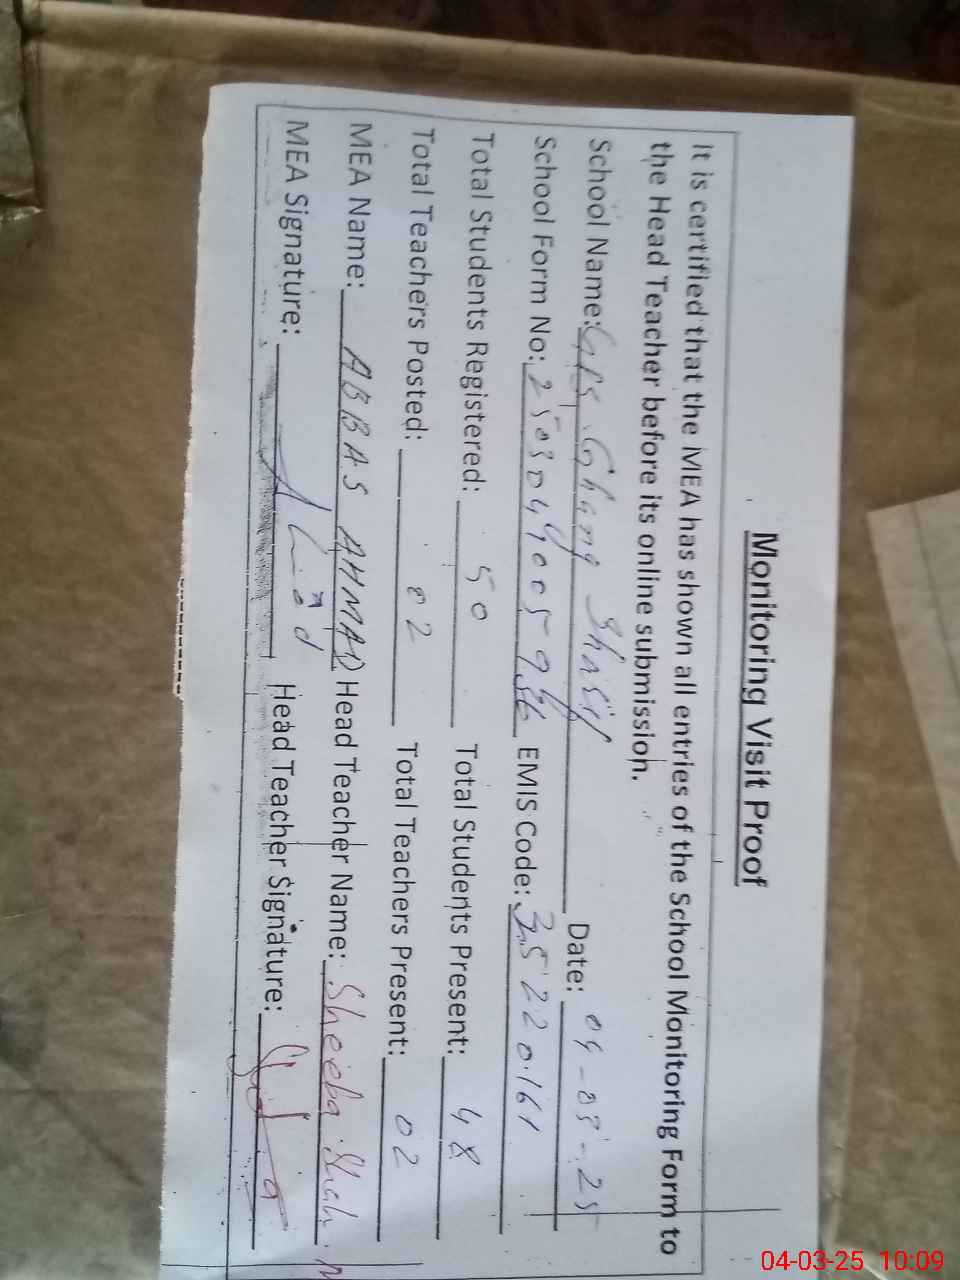 Monitoring Visit Proof
It is certified that the MEA has shown all entries of the School Monitoring Form to
the Head Teacher before its online submission.
School Name: GPS Ghang Sharif Date: 04-03-25
School Form No: EMIS Code: 35220161
Total Students Registered: 50 Total Students Present: 48
Total Teachers Posted: 02 Total Teachers Present: 02
MEA Name: ABBAS AHMAD Head Teacher Name: Sheeba Shah
MEA Signature: Head Teacher Signature:
04-03-25 10:09